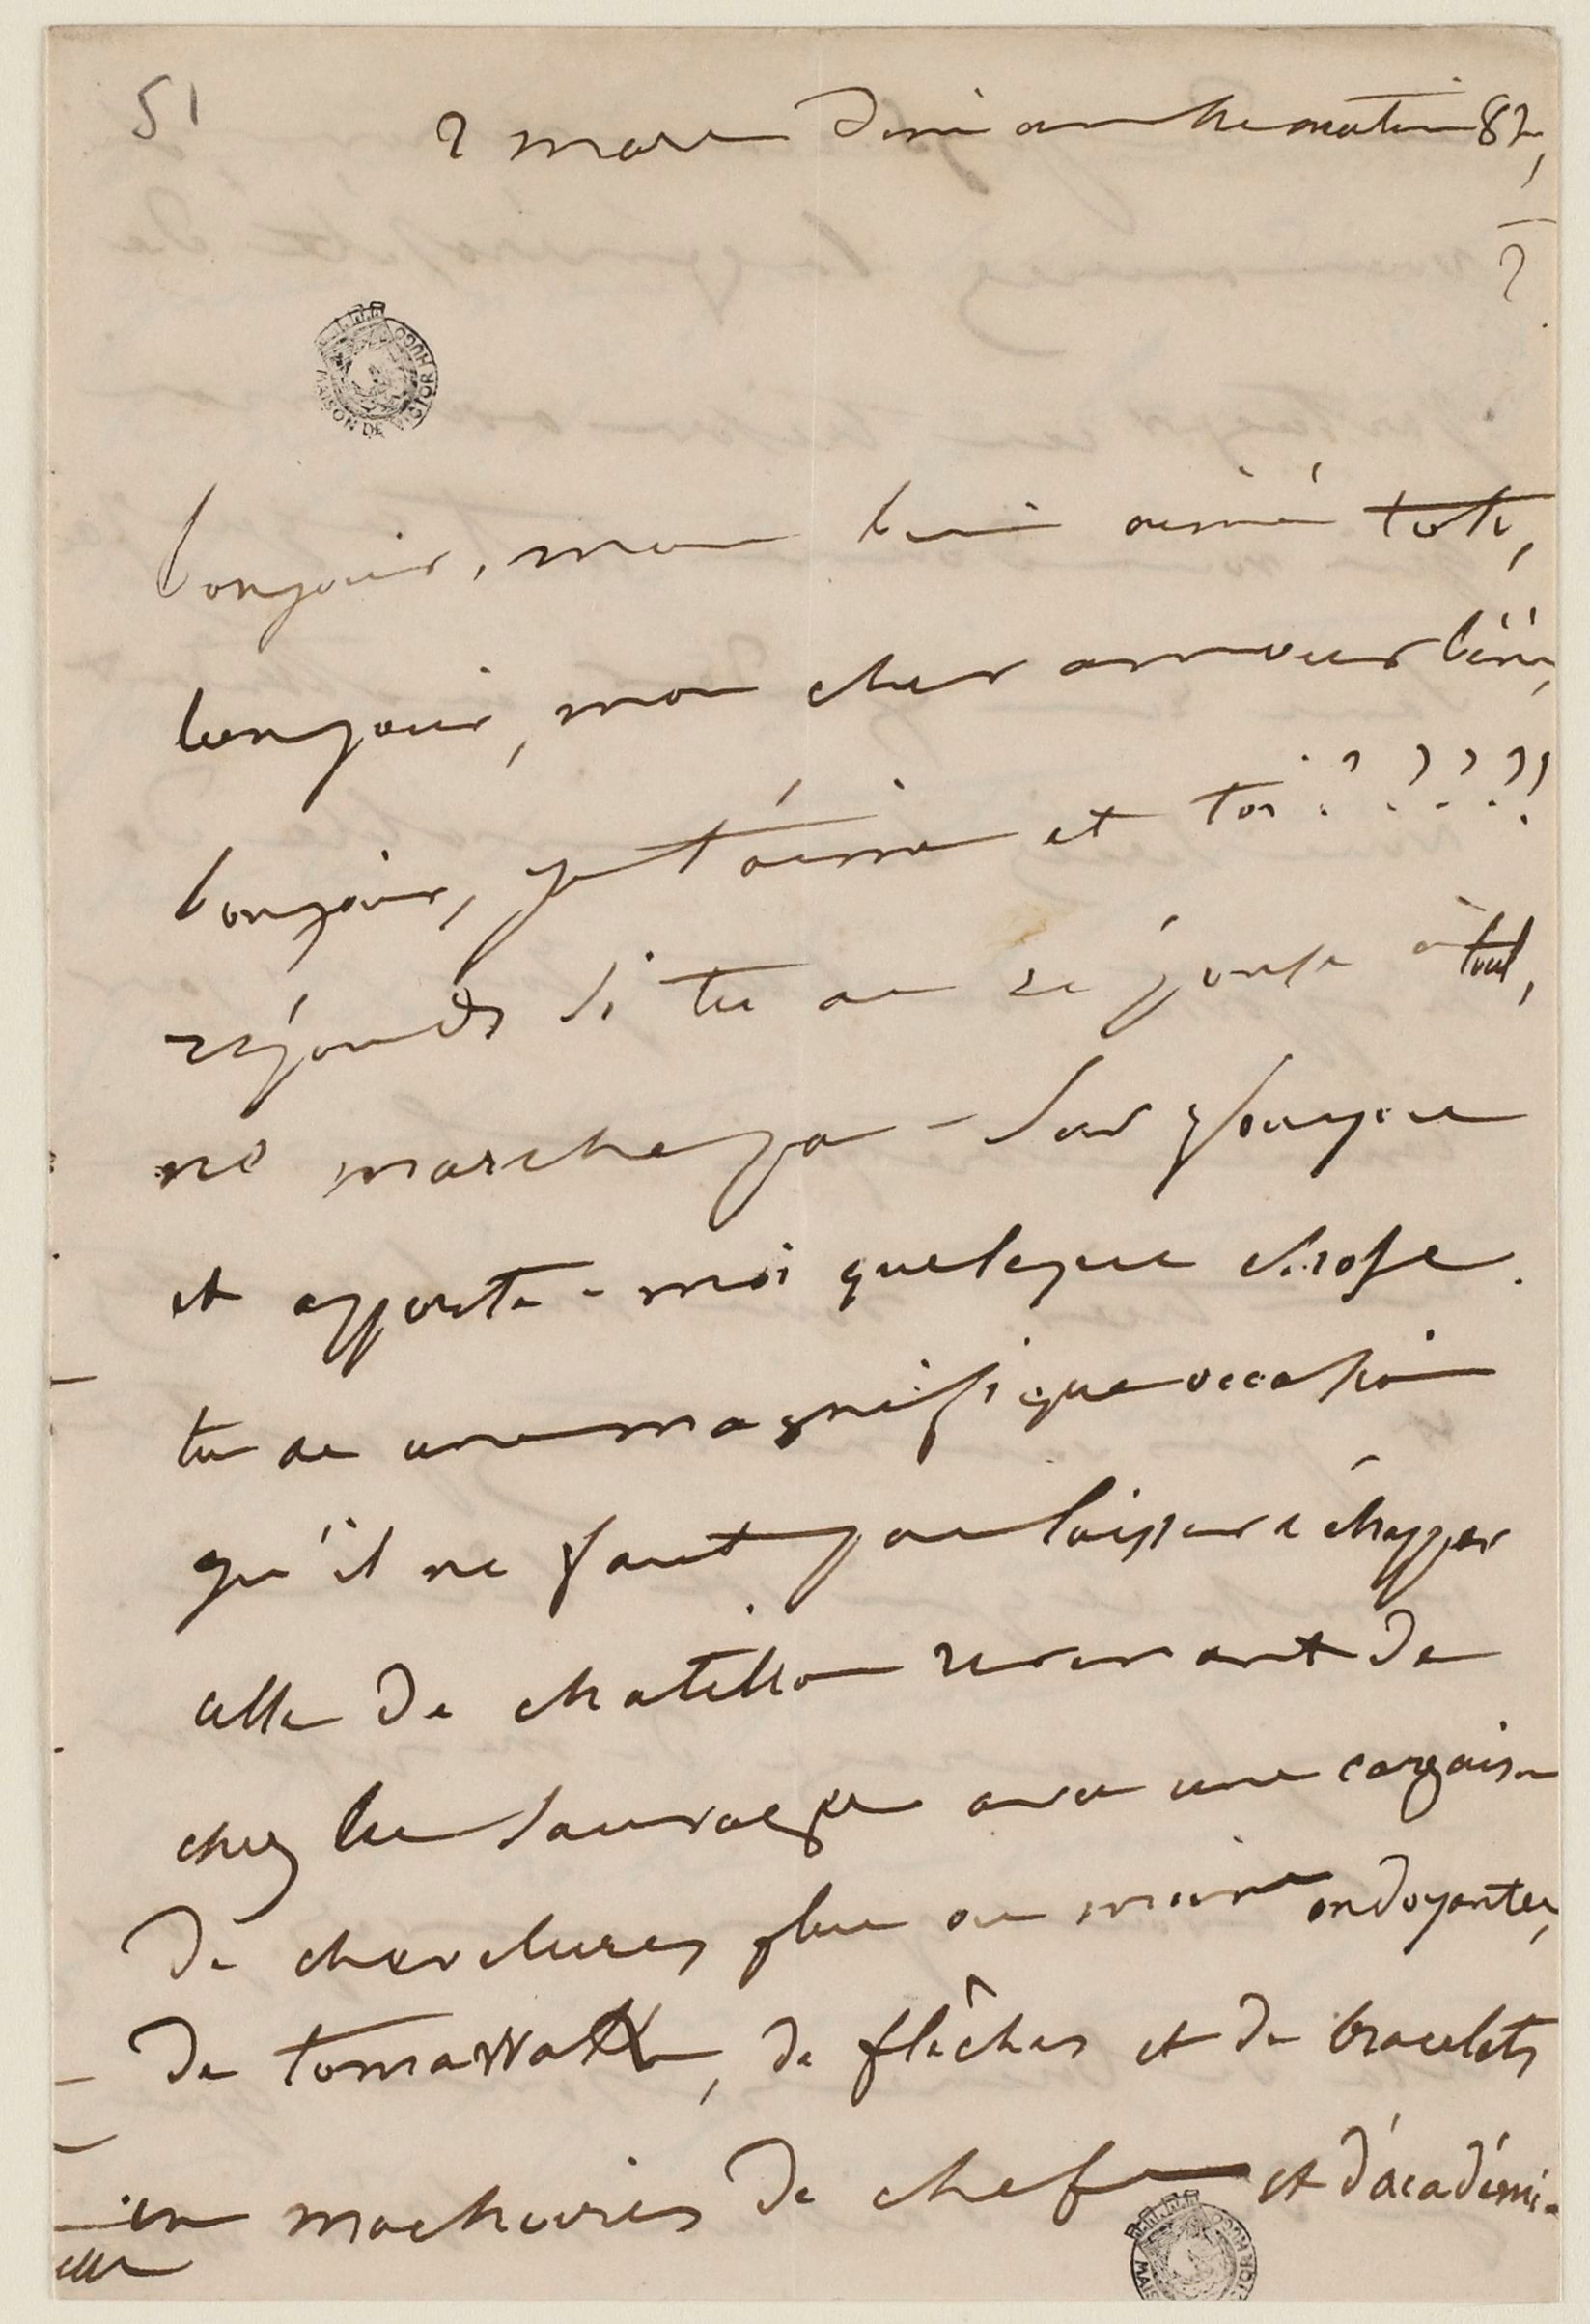 51
2 mars Dimanche matin 8h,
½
MAISON DE VICTOR HUGO
bonjour, mon bien aimé toto,
bonjour, mon cher amour béni,
bonjour, je t'aime et toi ? ? ? ?!
réponds si tu as réponse à tout,
ne marche pas sur
et apporte-moi quelque chose.
tu as une magnifique occasion
qu'il ne faut pas laisser échapper
celle de chatillon revenant de
chez les sauvages avec une cargaison
de chevelures plus ou moins ondoyantes,
de tomawaks, de flêches et de bracelets
en machoires de chefs et d'académi-
MAIS HUGO